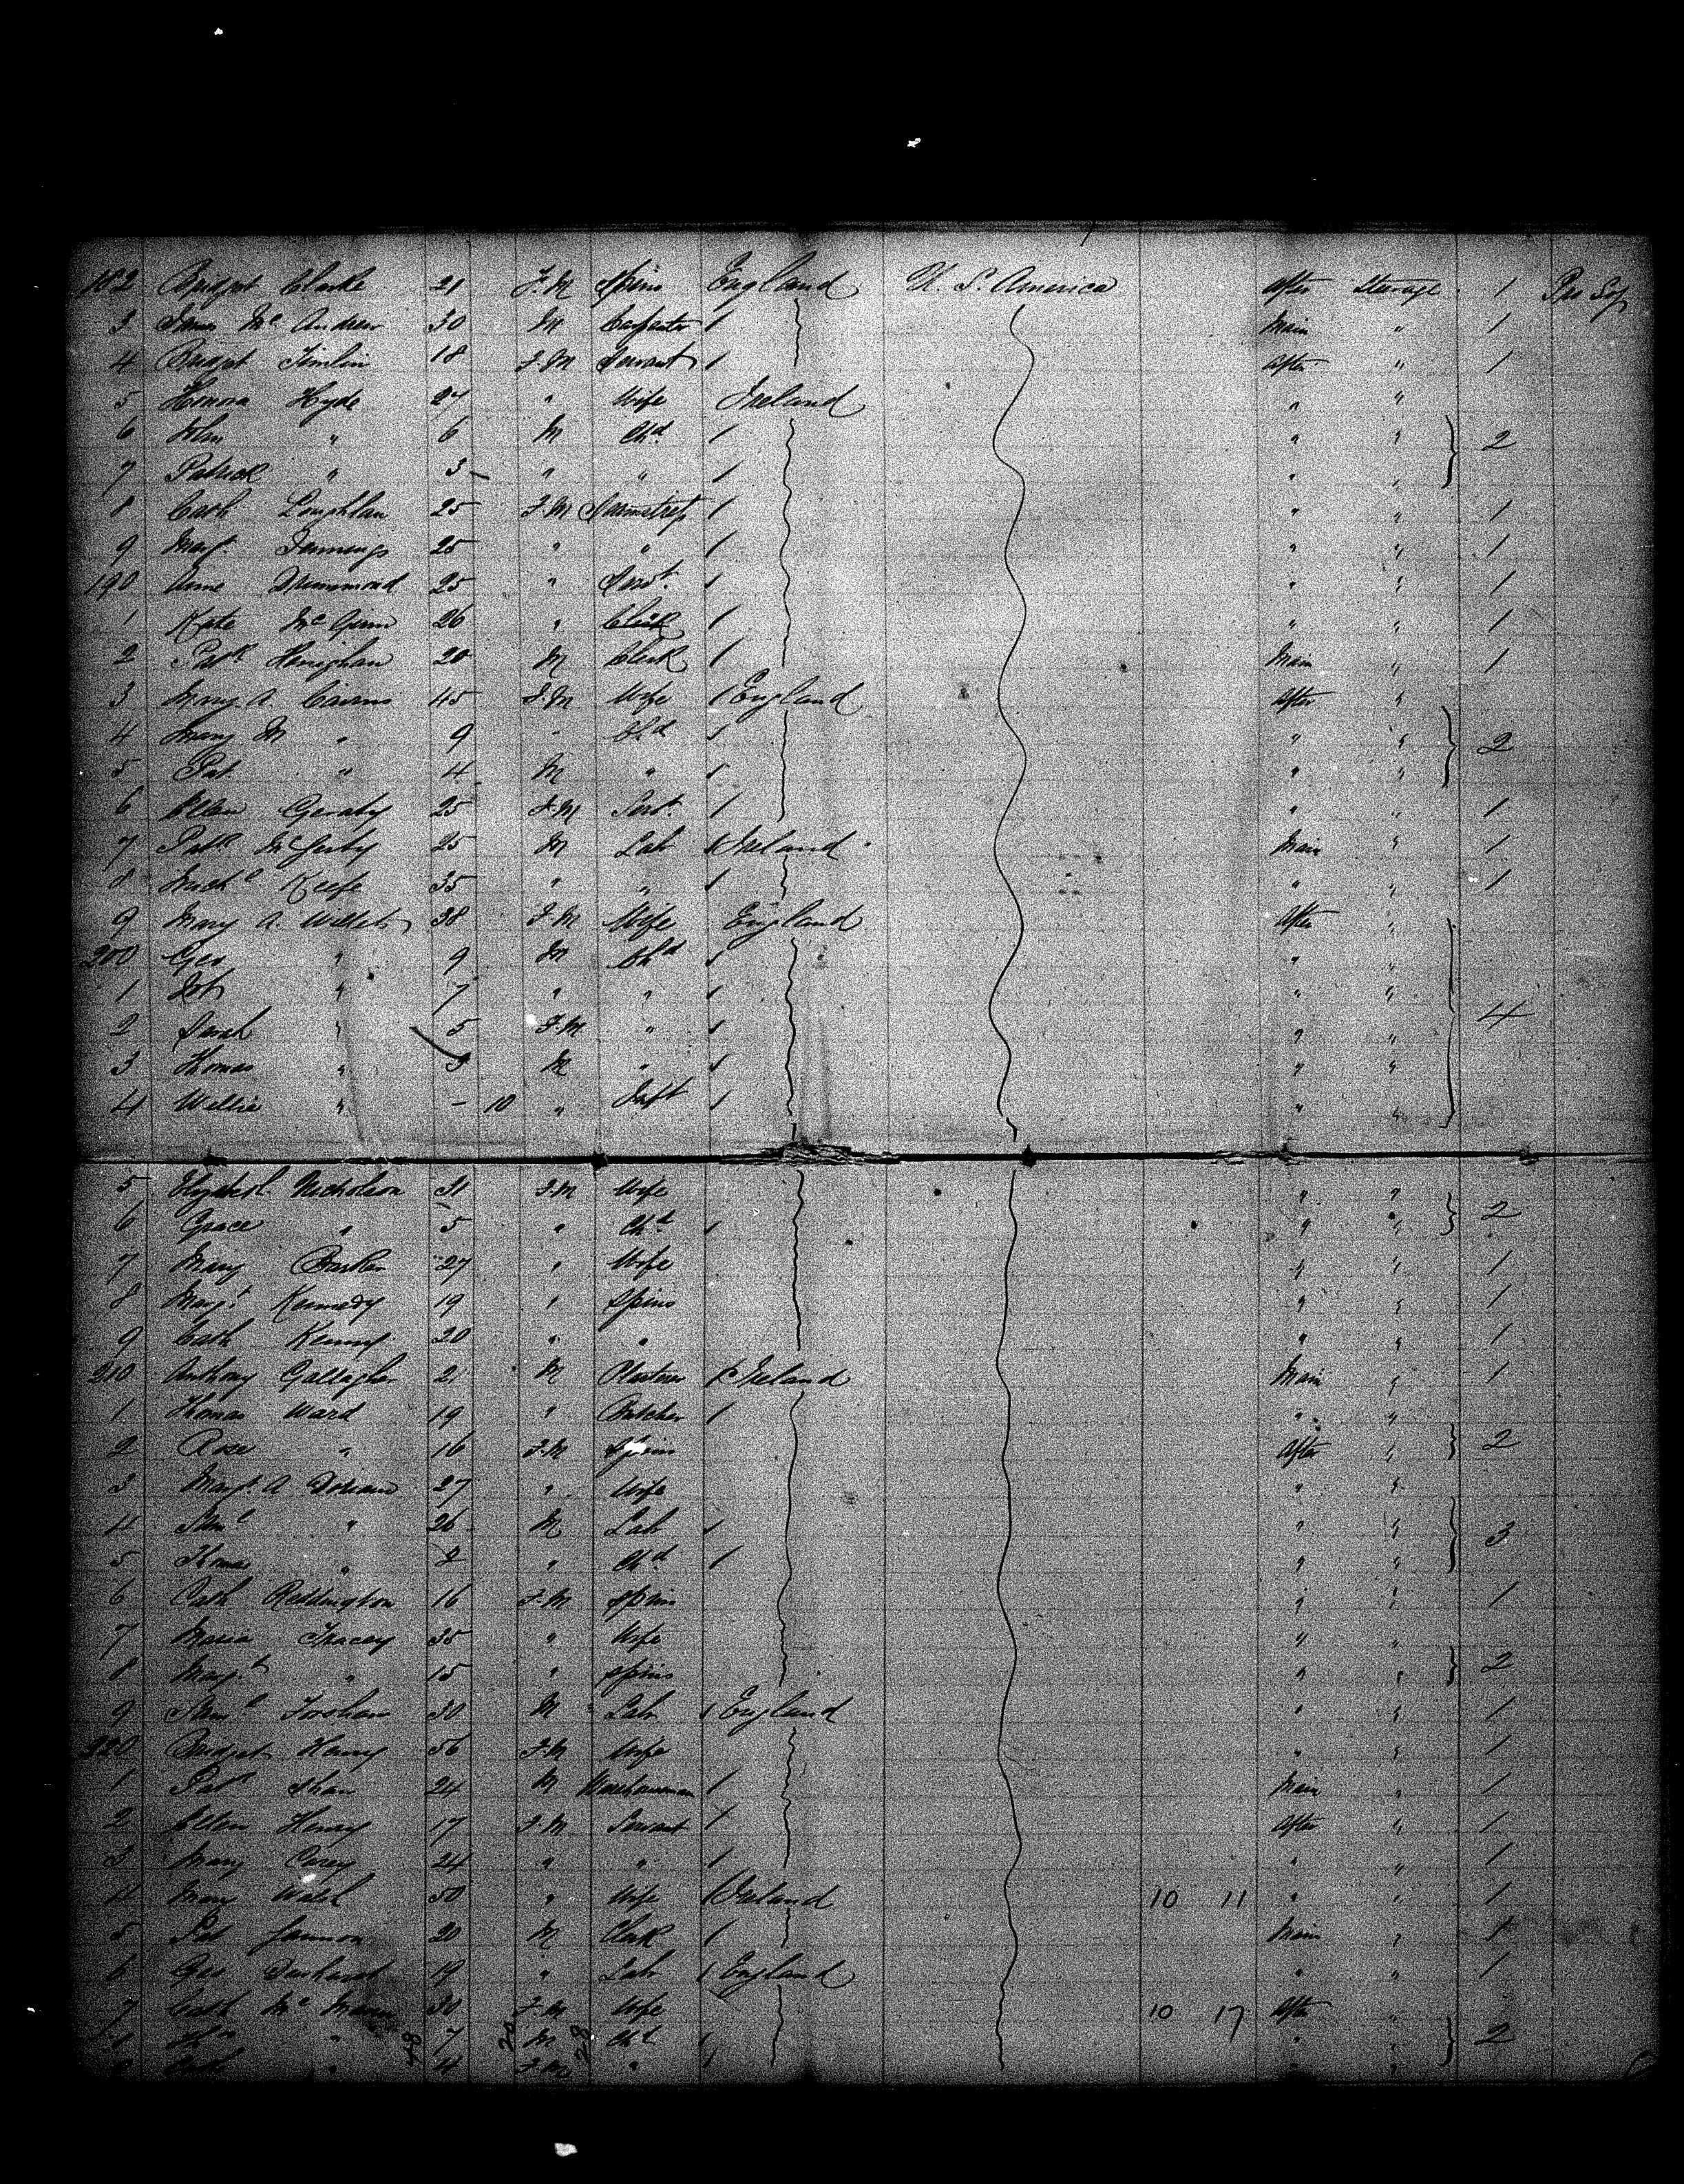 182 Bridget Clarke 21 F.M Spins England U. S. America After Steerage 1
3 James Mc Andrew 30 M Carpenter 1 Main " 1
4 Bridget Timlin 18 F.M Servant 1 After " 1
5 Honora Hyde 24 " Wife Ireland " "
6 John " 6 M Chd 1 " " 2
7 Patrick " 3 " " 1 " "
8 Cath Loughlan 25 F.M Seamstress 1 " " 1
9 Margt Jennings 25 " " 1 " " 1
190 Anne Drummond 25 " Servt 1 " " 1
1 Kate Mc Ginn 26 " 1 " " 1
2 Patk Harrighan 20 M Clerk 1 Main " 1
3 Mary A. Cairns 45 F.M Wife 1 England After "
4 Mary M " 9 " Chd 1 " " 2
5 Pat " 4 M " 1 " "
6 Ellen Geraty 25 F.M Servt 1 " " 1
7 Patk 25 M Lab 1 Ireland Main " 1
8 Michl Keefe 35 " " 1 " " 1
9 Mary A. Willets 38 F.M Wife England After "
200 Geo " 9 M Chd 1 " "
1 " 7 " " 1 " "
2 Sarah " 5 F.M " 1 " " 4
3 Thomas " 3 M " 1 " "
4 Willie " - 10 " Inft 1 " "
5 Nicholson 31 F.M Wife " "
6 Grace " 5 " Chd 1 " " 2
7 Mary Barker 27 " Wife " " 1
8 Margt Kennedy 19 " Spins " " 1
9 Cath Kenny 20 " " " " 1
210 Anthony Gallagher 21 M Plasterer 1 Ireland Main " 1
1 Thomas Ward 19 " Butcher 1 " "
2 Rose " 16 F.M Spins After " 2
3 Margt A 27 " Wife " "
4 Saml " 26 M Lab 1 " " 3
5 Thomas " " Chd 1 " "
6 Cath Reddington 16 F.M Spins " " 1
7 Maria Tracey 35 " Wife " "
8 Margt " 15 " Spins " " 2
9 Saml 30 M Lab 1 England " " 1
220 Bridget Henry 56 F.M Wife " " 1
1 Patk 24 M Warehouseman 1 Main " 1
2 Ellen Henry 17 F.M Servant 1 After " 1
3 Mary Carey 24 " " 1 " " 1
4 Mary Walsh 50 " Wife 1 Ireland 10 11 " " 1
5 Pat 20 M Clerk 1 Main " 1
6 Geo 19 " Lab 1 England " " 1
7 Cath Mc Mann 30 F.M Wife 10 17 After "
" 7 M Chd 1 " " 2
" 4 F.M " 1 " "
48 20 28